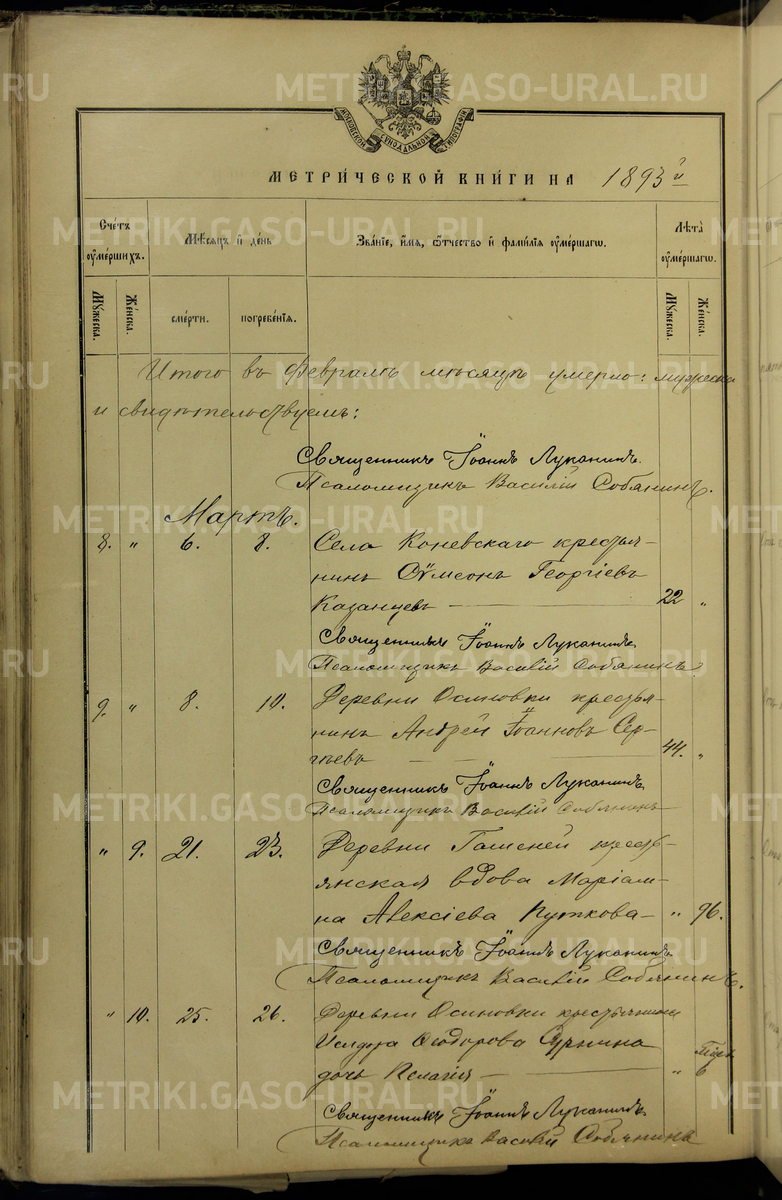 МОСКОВСКОЙ СѴНОДАЛЬНОЙ ТИПОГРАФІИ
МЕТРИ́ЧЕСКОЙ КНИ́ГИ НА 1893й
Сче́тъ ᲂу҆ме́ршихъ.
Мѣ́сѧцъ и҆ де́нь
Зва́нїе, и҆́мѧ, ѻ҆́тчество и҆ фами́лїѧ ᲂу҆ме́ршагѡ.
Лѣ́та ᲂу҆ме́ршагѡ.
Мꙋ́жеска.
Же́нска.
сме́рти.
погребе́нїѧ.
Мꙋ́жеска.
Же́нска.
Итого въ Февралѣ мѣсяцѣ умерло: мужеска
и свидѣтельствуемъ:
Священникъ Іоаннъ Луканинъ.
Псаломщикъ Василій Собянинъ.
Мартъ.
8. " 6. 8. Села Коневскаго крестья-
нинъ Сѵмеонъ Георгіевъ
Казанцевъ — 22 "
Священникъ Іоаннъ Луканинъ
Псаломщикъ Василій Собянинъ
9. " 8. 10. Деревни Осиновки крестья-
нинъ Андрей Іоанновъ Сер-
гѣевъ — 44. "
Священникъ Іоаннъ Луканинъ
Псаломщикъ Василій Собянинъ
" 9. 21. 23. Деревни крестья-
янская вдова Маріам-
на Алексіева Путкова — " 96.
Священникъ Іоаннъ Луканинъ
Псаломщикъ Василій Собянинъ.
" 10. 25. 26. Деревни Осиновки крестьянина
Ѳеодорова
дочь Пелагія — " 6
Священникъ Іоаннъ Луканинъ
Псаломщикъ Василій Собянинъ
METRIKI.GASO-URAL.RU